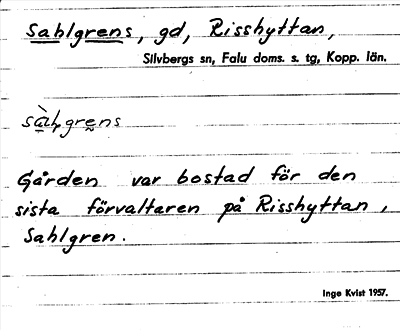 Sahlgrens, gd, Risshyttan,
Silvbergs sn, Falu doms. s. tg, Kopp. län.
sàlgrens
Gården var bostad för den
sista förvaltaren på Risshyttan,
Sahlgren.
Inge Kvist 1957.